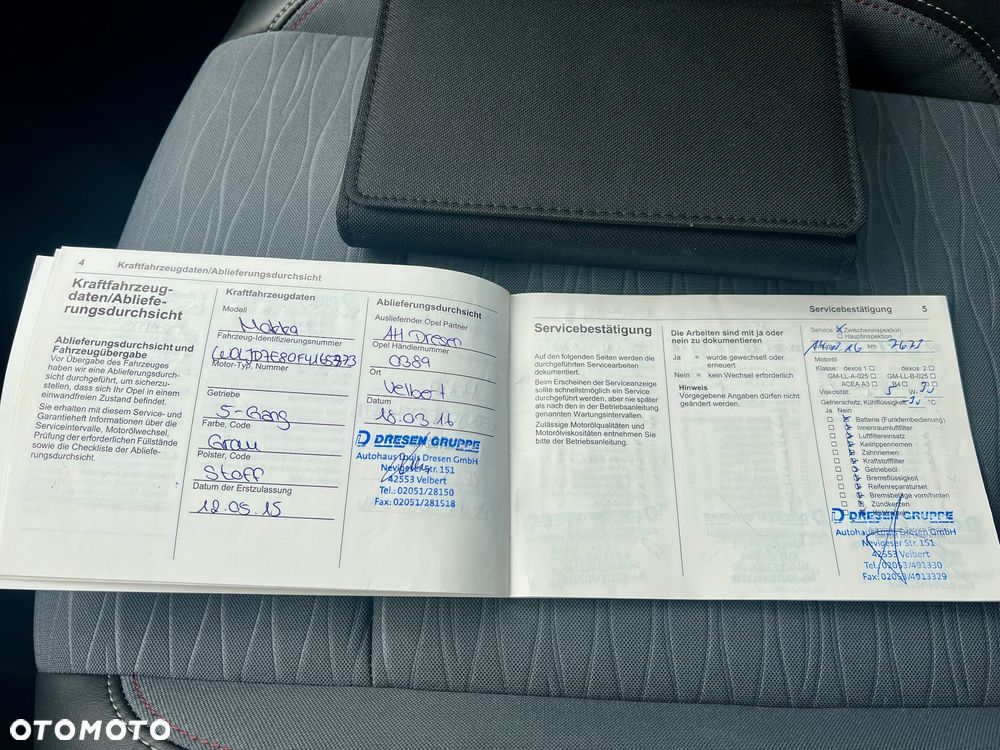 4 Kraftfahrzeugdaten/Ablieferungsdurchsicht
Kraftfahrzeug-
daten/Abliefe-
rungsdurchsicht
Ablieferungsdurchsicht und
Fahrzeugübergabe
Vor Übergabe des Fahrzeuges
haben wir eine Ablieferungsdurch-
sicht durchgeführt, um sicherzu-
stellen, dass sich Ihr Opel in einem
einwandfreien Zustand befindet.
Sie erhalten mit diesem Service- und
Garantieheft Informationen über die
Serviceintervalle, Motorölwechsel,
Prüfung der erforderlichen Füllstände
sowie die Checkliste der Ablieferungsdurchsicht.
Kraftfahrzeugdaten
Modell
Mokka
Fahrzeug-Identifizierungsnummer
Motor-Typ, Nummer
Getriebe
5-Gang
Farbe, Code
Grau
Polster, Code
Stoff
Datum der Erstzulassung
12.05.15
Ablieferungsdurchsicht
Ausliefernder Opel Partner
AH Dresen
Opel Händlernummer
0389
Ort
Velbert
Datum
18.03.16
DRESEN GRUPPE
Autohaus Louis Dresen GmbH
Nevigeser Str. 151
42553 Velbert
Tel.: 02051/28150
Fax: 02051/281518
Servicebestätigung 5
Servicebestätigung
Auf den folgenden Seiten werden die
durchgeführten Servicearbeiten
dokumentiert.
Beim Erscheinen der Serviceanzeige
sollte schnellstmöglich ein Service
durchgeführt werden, aber nie später
als nach den in der Betriebsanleitung
genannten Wartungsintervallen.
Zusätzliche Motorölqualitäten und
Motorölviskositäten entnehmen Sie
bitte der Betriebsanleitung.
Die Arbeiten sind mit ja oder
nein zu dokumentieren
Ja = wurde gewechselt oder
erneuert
Nein = kein Wechsel erforderlich
Hinweis
Vorgegebene Angaben dürfen nicht
geändert werden.
Service: Zwischeninspektion
Hauptinspektion
km
Motoröl
Klasse: dexos 1 dexos 2
GM-LL-A-025 GM-LL-B-025
ACEA A3
Viskosität: 5 W-
Gefrierschutz, Kühlflüssigkeit °C
Ja Nein
Batterie (Funkfernbedienung)
Innenraumluftfilter
Luftfiltereinsatz
Keilrippenriemen
Zahnriemen
Kraftstofffilter
Getriebeöl
Bremsflüssigkeit
Reifenreparaturset
Bremsbeläge vorn/hinten
Zündkerzen
DRESEN GRUPPE
Autohaus Louis Dresen GmbH
Nevigeser Str. 151
42553 Velbert
Tel.: 02053/491330
Fax: 02053/4913329
OTOMOTO